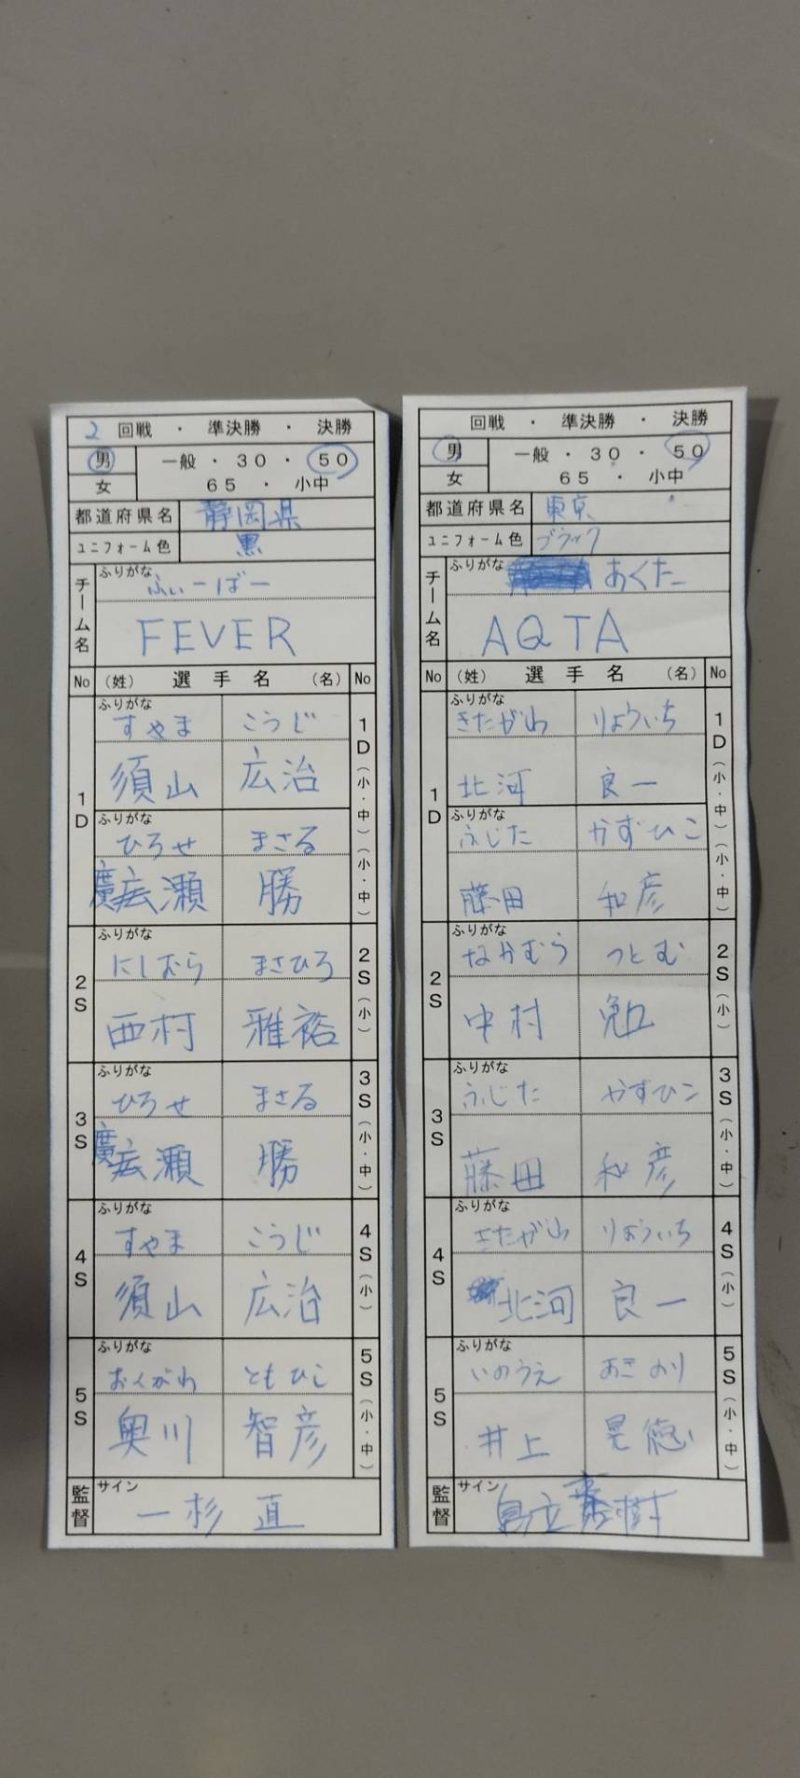 2 回戦 ・ 準決勝 ・ 決勝
男 一般 ・ 30 ・ 50
女 65 ・ 小中
都道府県名 静岡県
ユニフォーム色 黒
チーム名 ふりがな ふぃーばー
FEVER
No (姓) 選手名 (名) No
1D ふりがな 1D(小・中)(小・中)
すやま こうじ
須山 広治
ふりがな
ひろせ まさる
廣瀬 勝
2S ふりがな 2S(小)
にしむら まさひろ
西村 雅裕
3S ふりがな 3S(小・中)
ひろせ まさる
廣瀬 勝
4S ふりがな 4S(小)
すやま こうじ
須山 広治
5S ふりがな 5S(小・中)
おくがわ ともひこ
奥川 智彦
監督 サイン
一杉 直
回戦 ・ 準決勝 ・ 決勝
男 一般 ・ 30 ・ 50
女 65 ・ 小中
都道府県名 東京
ユニフォーム色 ブラック
チーム名 ふりがな あくた
AQTA
No (姓) 選手名 (名) No
1D ふりがな 1D(小・中)(小・中)
きたがわ りょういち
北河 良一
ふりがな
ふじた かずひこ
藤田 和彦
2S ふりがな 2S(小)
なかむら つとむ
中村 勉
3S ふりがな 3S(小・中)
ふじた かずひこ
藤田 和彦
4S ふりがな 4S(小)
きたがわ りょういち
北河 良一
5S ふりがな 5S(小・中)
いのうえ あきのり
井上 晃徳
監督 サイン